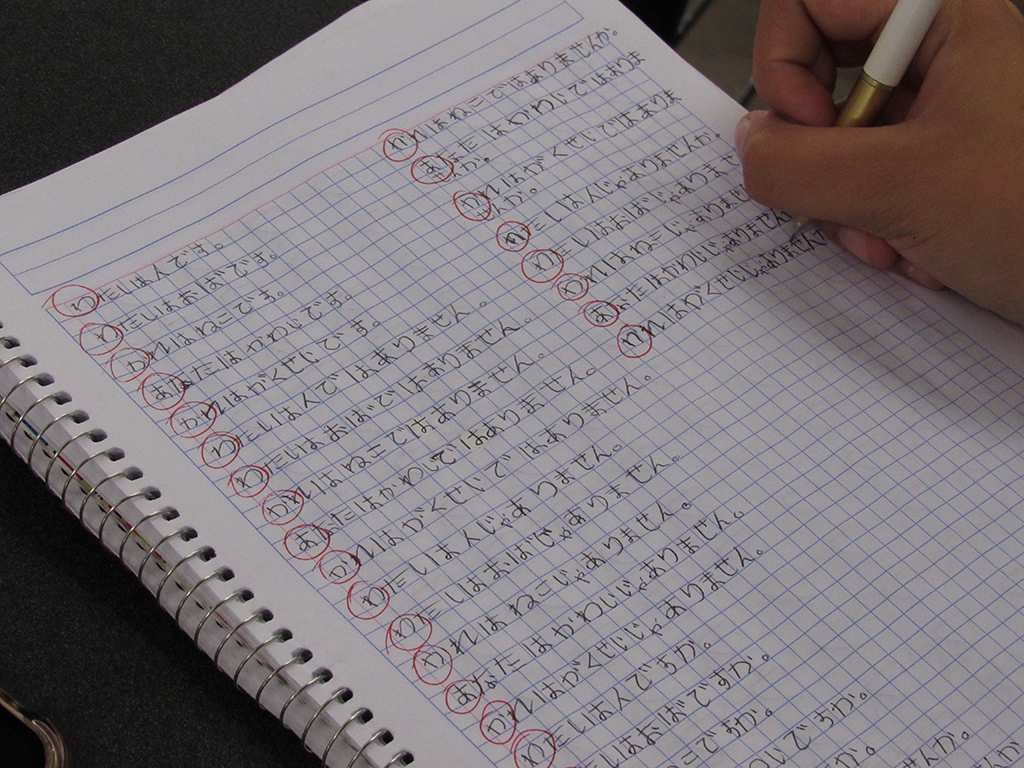 わたしはんです。
わたしはおばです。
かれはねこです。
あなたはかわいいです。
かれはがくせいです。
わたしはんではありません。
わたしはおばではありません。
かれはねこではありません。
あなたはかわいいではありません。
かれはがくせいではありません。
わたしはんじゃありません。
わたしはおばじゃありません。
かれはねこじゃありません。
あなたはかわいいじゃありません。
かれはがくせいじゃありません。
わたしはんですか。
しはおばですか。
こですか。
いですか。
か。
せんか。
かれはねこではありませんか。
あなたはかわいいではありま
せんか。
かれはがくせいではありま
せんか。
わたしはんじゃありませんか。
わたしはおばじゃありま
かれはねこじゃありま
あなたはかわいいじゃありません
かれはがくせいじゃありません